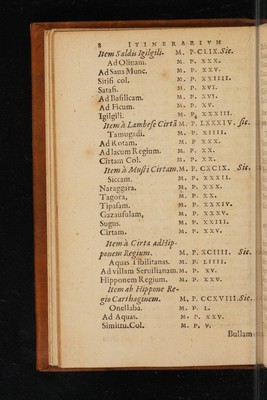 8 ITINERARIVM
Item Saldis Igilgili. M. P. CLIX. Sic.
Ad Oliuam. M. P. XXX.
Ad Saua Munc. M. P. XXV.
Sitifi col. M. P. XXIIII.
Satafi. M. P. XVI.
Ad Basilicam. M. P. XVI.
Ad Ficum. M. P. XV.
Igilgili. M. P. XXXIII.
Item à Lambese Cirtã M. P. LXXXIV. sic.
Tamugadi. M. P. XIIII.
Ad Rotam. M. P. XXX.
Ad lacum Regium. M. P. XX.
Cirtam Col. M. P. XX.
Item à Musti Cirtam. M. P. CXCIX. Sic.
Siccam. M. P. XXXII.
Naraggara. M. P. XXX.
Tagora, M. P. XX.
Tipasam. M. P. XXXIV.
Gazaufulam, M. P. XXXV.
Sugus. M. P. XXIII.
Cirtam. M. P. XXV.
Item à Cirta ad Hip-
ponem Regium. M. P. XCIIII. Sic.
Aquas Tibilitanas. M. P. LIIII.
Ad villam Seruilianam. M. P. XV.
Hipponem Regium. M. P. XXV.
Item ab Hippone Re-
gio Carthaginem. M. P. CCXVIII. Sic.
Onellaba. M. P. L.
Ad Aquas. M. P. XXV.
Simittu.Col. M. P. V.
Bullam